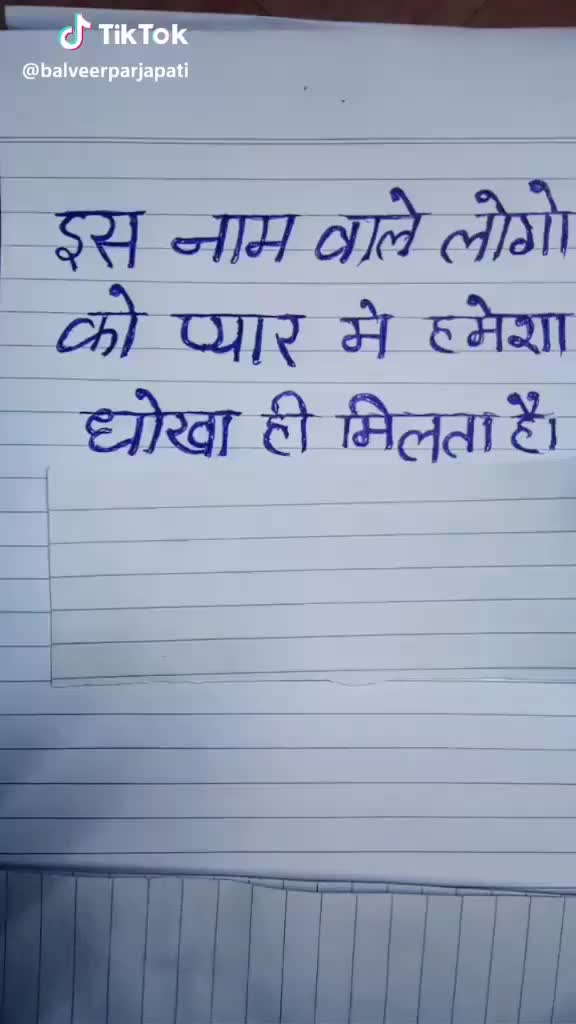 TikTok
@balveerparjapati
इस नाम वाले लोगो
को प्यार मे हमेशा
धोखा ही मिलता है।